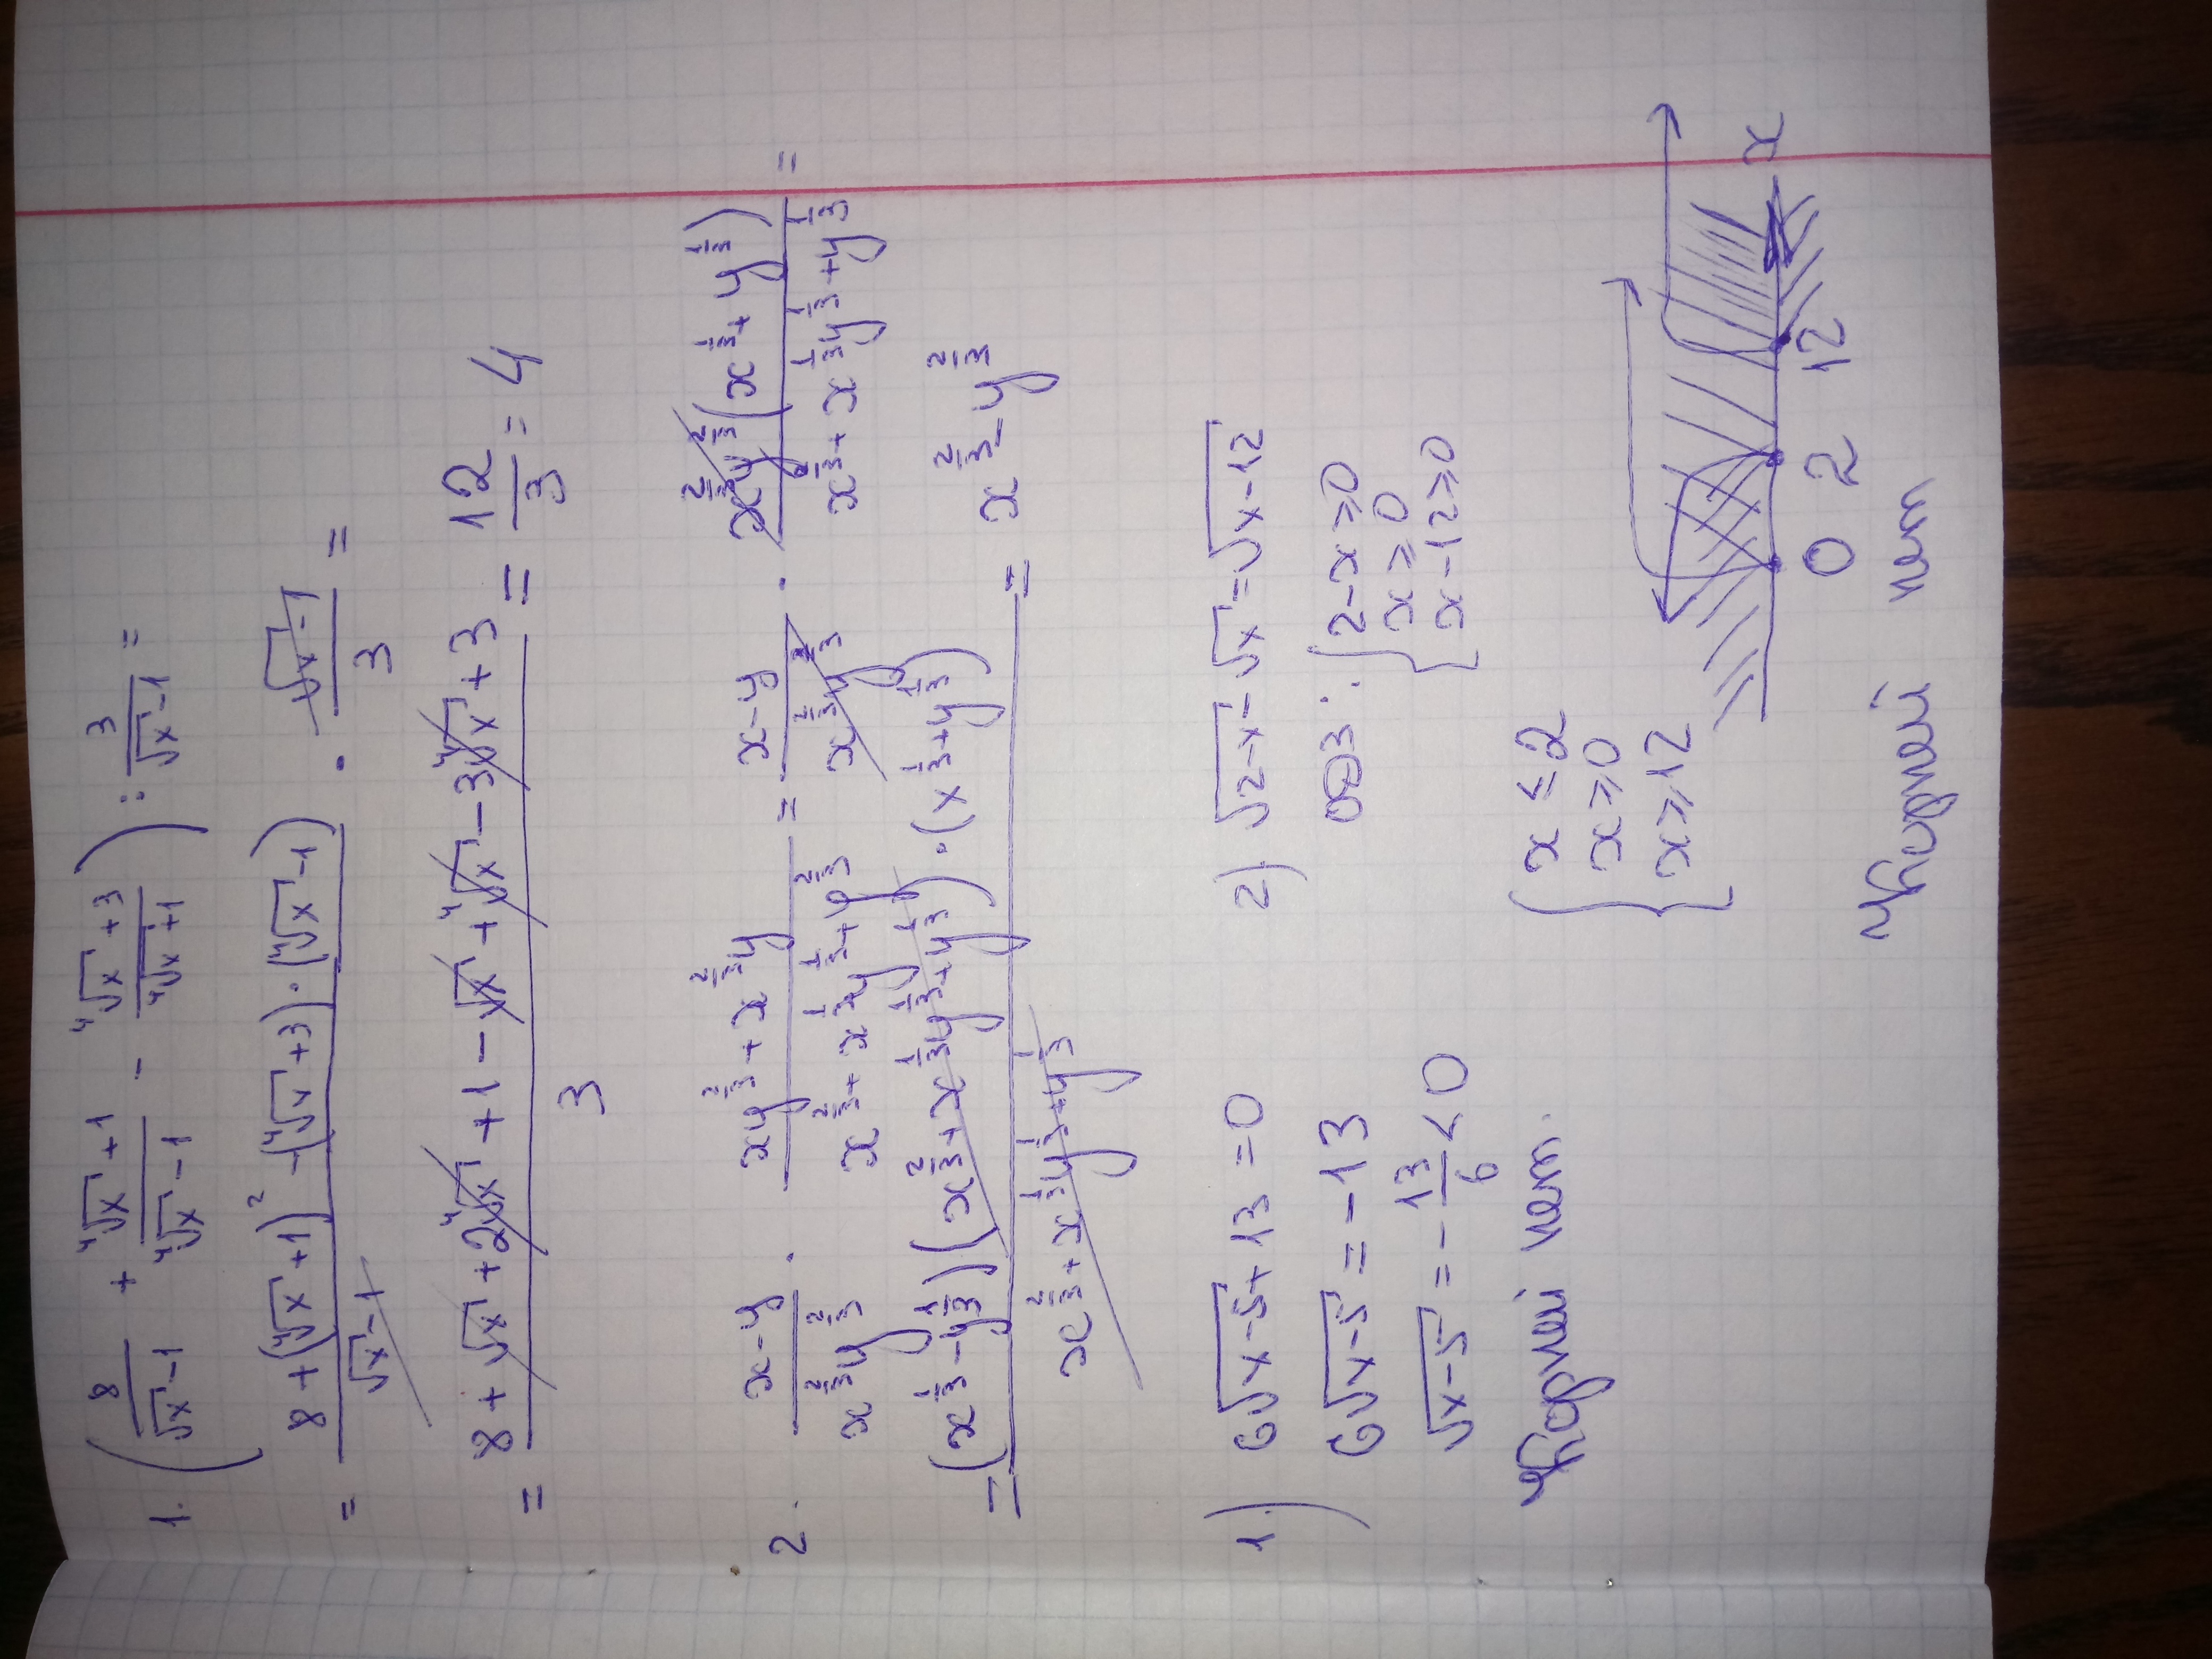 1. (8/(√x-1) + (⁴√x+1)/(⁴√x-1) - (⁴√x+3)/(⁴√x+1)) : 3/(√x-1) =
= (8+(⁴√x+1)² -(⁴√x+3)·(⁴√x-1))/(√x-1) · (√x-1)/3 =
= (8+√x+2⁴√x+1-√x+⁴√x-3⁴√x+3)/3 = 12/3 = 4
2. (x-y)/(x^(2/3)y^(2/3)) · (xy^(2/3)+x^(2/3)y)/(x^(2/3)+x^(1/3)y^(1/3)+y^(2/3)) = (x-y)/(x^(2/3)y^(2/3)) · x^(2/3)y^(2/3)(x^(1/3)+y^(1/3))/(x^(1/3)+x^(1/3)y^(1/3)+y^(1/3)) =
= (x^(1/3)-y^(1/3))(x^(2/3)+x^(1/3)y^(1/3)+y^(1/3))·(x^(1/3)+y^(1/3))/(x^(2/3)+x^(1/3)y^(1/3)+y^(1/3)) = x^(2/3)-y^(2/3)
1) 6√(x-5)+13=0
6√(x-5)=-13
√(x-5)=-13/6<0
Корней нет.
2) √(2-x)-√x=√(x-12)
ОДЗ: { 2-x≥0
x≥0
x-12≥0
{ x≤2
x≥0
x≥12
0 2 12 x
Корней нет